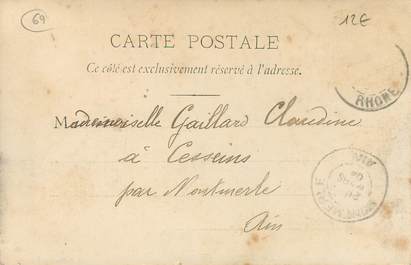 69
12€
CARTE POSTALE
Ce côté est exclusivement réservé à l'adresse.
RHONE
Mademoiselle Gaillard Claudine
à Cesseins
par Montmerle
Ain
MONTMERLE
AIN